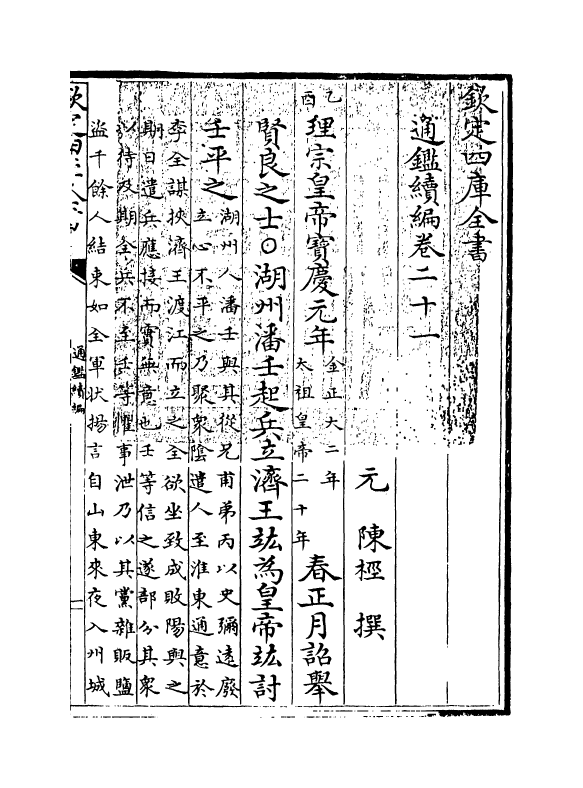 欽定四庫全書
通鑑續編卷二十一
元 陳桱 撰
乙酉
理宗皇帝寶慶元年
金正大二年
太祖皇帝二十年
春正月詔舉
賢良之士○湖州潘壬起兵立濟王竑為皇帝竑討
壬平之
湖州人潘壬與其從兄甫弟丙以史彌遠廢
立心不平之乃聚衆陰遣人至淮東通意於
李全謀挾濟王渡江而立之全欲坐致成敗陽與之
期日遣兵應接而實無意也壬等信之遂部分其衆
以待及期全兵不至壬等懼事泄乃以其黨雜販鹽
盜千餘人結束如全軍狀揚言自山東來夜入州城
通鑑續編
一